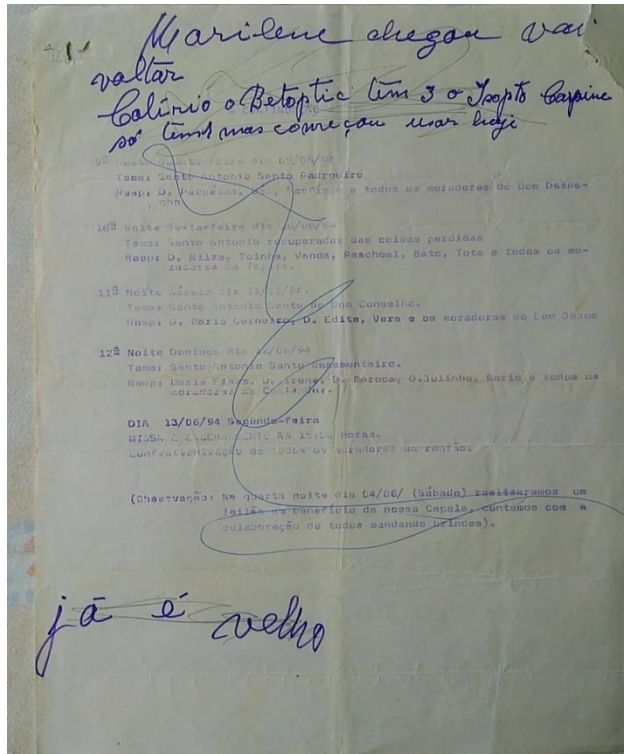 Marilene chegou vai
voltar
Colírio o Betoptic têm 3 o Isopto Carpine
só têm 1 mas começou usar hoje
CONTINUAÇÃO
9ª Noite Quinta-feira dia 09/06/94
Tema: Santo Antonio Santo Padroeiro
Resp: D. e todos os moradores do Bom Despa-
cho.
10ª Noite Sexta-feira dia 10/06/94
Tema: Santo Antonio recuperador das coisas perdidas
Resp: D. Nilza, Toinha, Vanda, Paschoal, Bato, Toto e todos os mo-
radores da
11ª Noite Sábado dia 11/06/94.
Tema: Santo Antonio Santo do Bom Conselho.
Resp: D. Maria Carneiro, D. Edite, Vera e os moradores do Bom Jesus
12ª Noite Domingo dia 12/06/94
Tema: Santo Antonio Santo casamenteiro.
Resp: Maria D. Irene, D. Maroca, D.Julinha, Maria e todos os
moradores da
DIA 13/06/94 Segunda-feira
MISSA E ENCERRAMENTO AS 15:00 Horas.
Confraternização de todos os moradores da região.
(Observação: Na quarta noite dia 04/06/ (Sábado) realizaremos um
leilão em benefício da nossa Capela, contamos com a
colaboração de todos mandando brindes).
já é velho